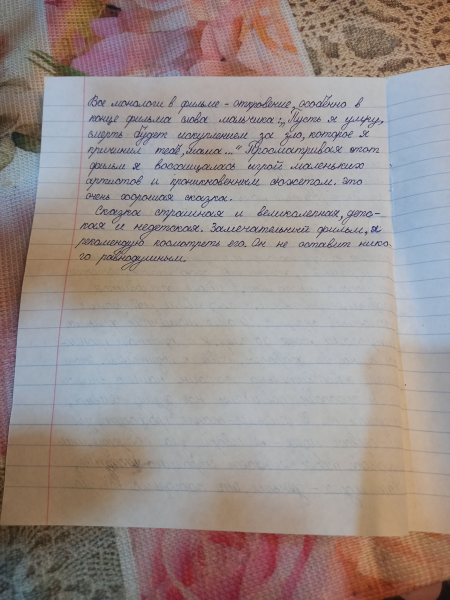 Все монологи в фильме - откровение, особенно в
конце фильма слова мальчика: „Пусть я умру,
смерть будет искуплением за зло, которое я
причинил тебе, мама..." Просматривая этот
фильм я восхищалась игрой маленьких
артистов и проникновенным сюжетом. Это
очень хорошая сказка.
Сказка страшная и великолепная, детс-
кая и недетская. Замечательный фильм, я
рекомендую посмотреть его. Он не оставит нико
го равнодушным.